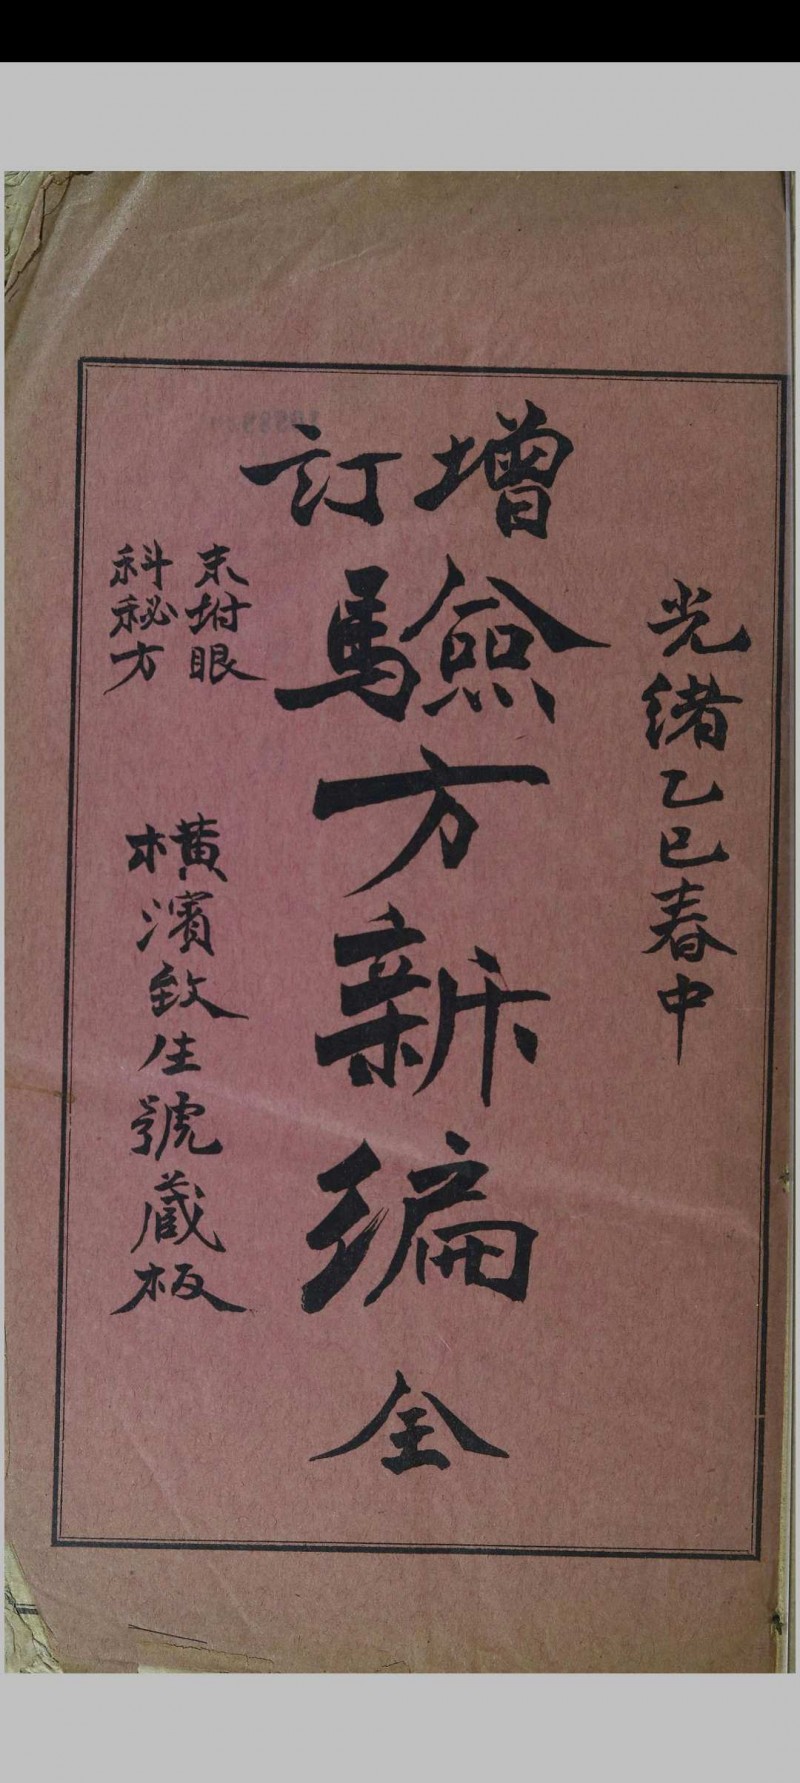 光緒乙巳春中
增訂
驗方新編
全
末坿眼
科秘方
橫濱致生號蔵板